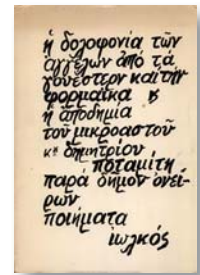 ἡ δολοφονία τῶν
ἀγγέλων ἀπό τά
γουέστερν καί τήν
φορμάικα
ἡ ἀποδημία
τοῦ μικροαστοῦ
κυ δημητρίου
ποταμίτη
παρά δῆμον ὀνεί-
ρων
ποιήματα
ἰωλκός